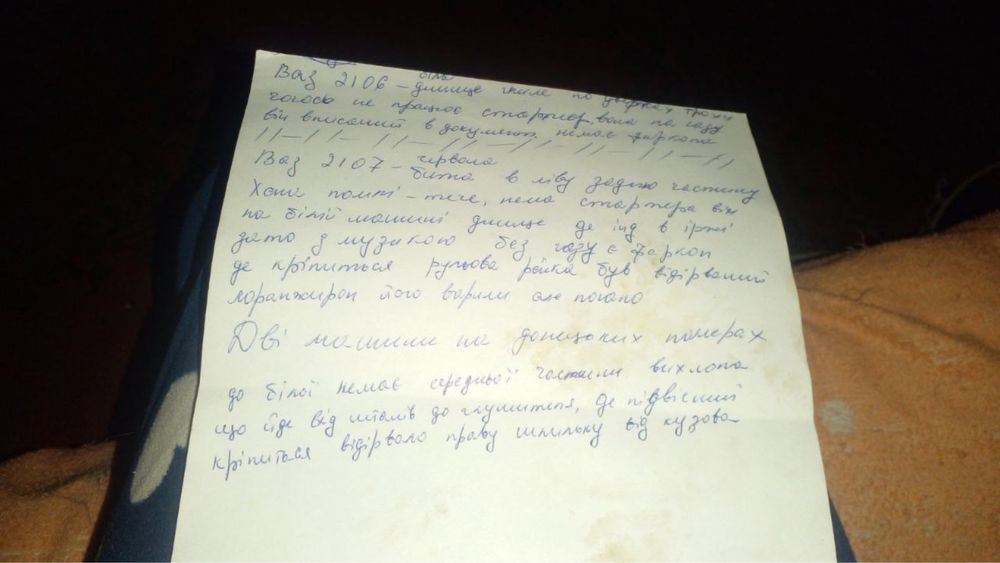 біла
Ваз 2106 – днище гниле по дверках трохи
чогось не працює стартер, вона на газу
він вписаний в документи немає фаркопа
червона
Ваз 2107 – бита в ліву задню частину
Хана помпі – тече, нема стартера він
на білій машині днище де інд в іржі
зато з музикою без газу є фаркоп
де кріпиться рульова рейка був відірваний
лонжирон його варили але погано
Дві машини на донецьких номерах
до білої немає середньої частини вихлопа
що йде від штанів до глушителя, де підвісний
кріпиться відірвало праву шпильку від кузова